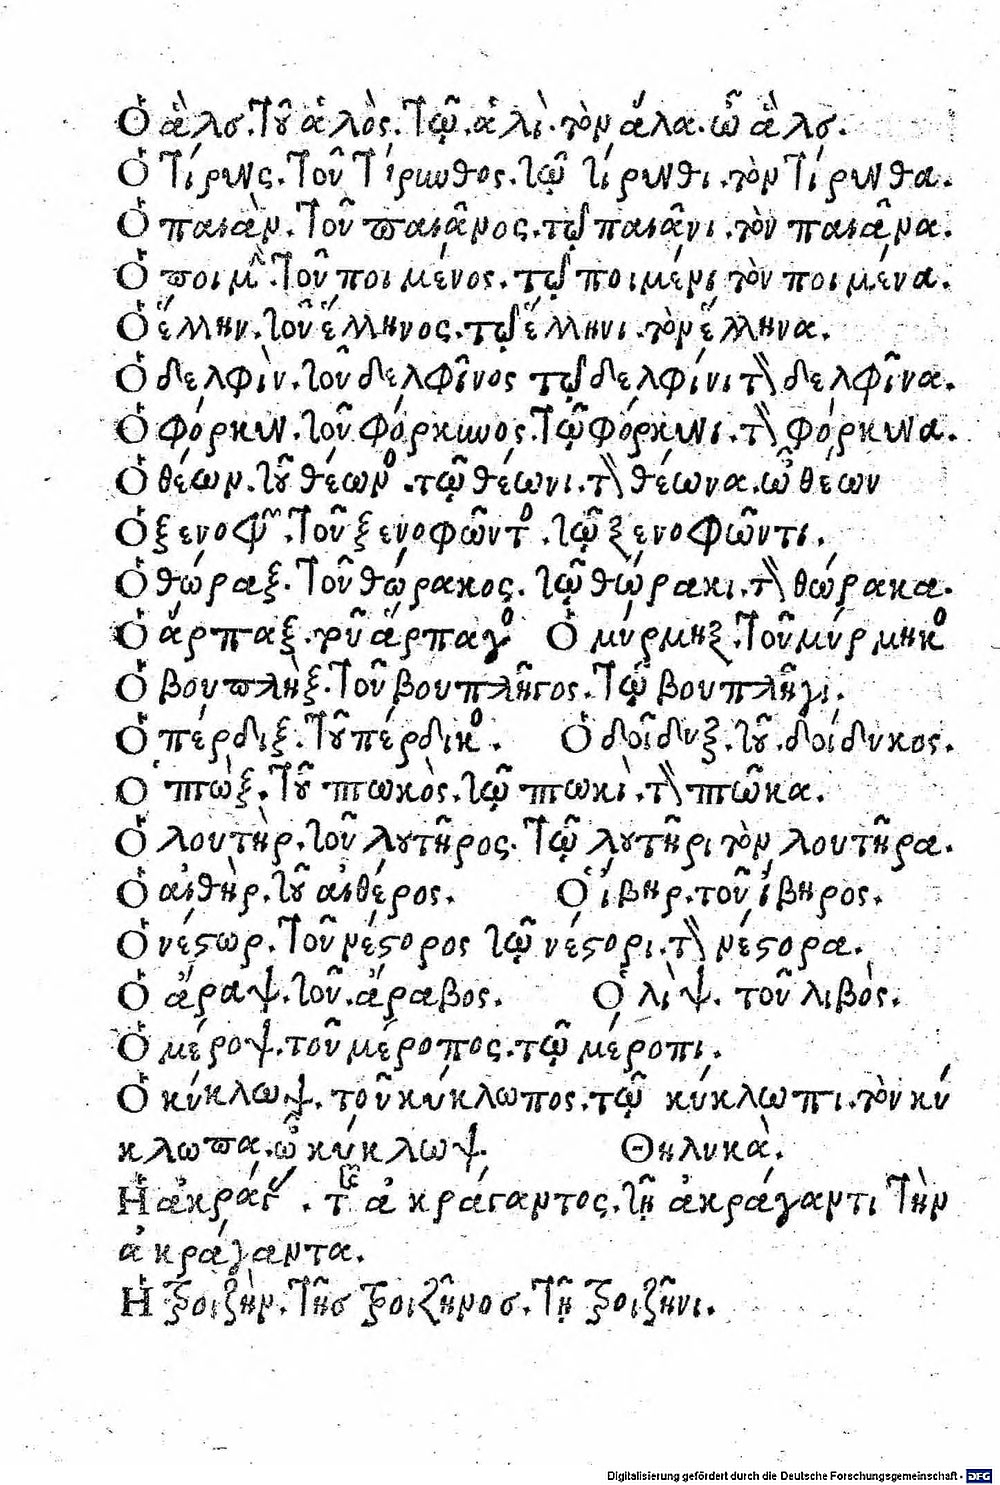 Ὁ ἃλσ. Τοῦ ἁλὸς. Τῷ. ἁλὶ. τὸν ἅλα. ὦ ἃλσ.
Ὁ Τίρυνς. Τοῦ Τίρυνθος. τῷ τίρυνθι. τὸν Τίρυνθα.
Ὁ παιὰν. Τοῦ παιᾶνος. τῷ παιᾶνι. τὸν παιᾶνα.
Ὁ ποιμὴν. Τοῦ ποιμένος. τῷ ποιμένι τὸν ποιμένα.
Ὁ ἕλλην. τοῦ ἕλληνος. τῷ ἕλληνι. τὸν ἕλληνα.
Ὁ δελφὶν. τοῦ δελφῖνος τῷ δελφίνι τὸν δελφῖνα.
Ὁ φόρκυν. τοῦ φόρκυνος. Τῷ φόρκυνι. τὸν φόρκυνα.
Ὁ θέων. τοῦ θέωνος. τῷ θέωνι. τὸν θέωνα. ὦ θέων
Ὁ ξενοφῶν. Τοῦ ξενοφῶντος. τῷ ξενοφῶντι.
Ὁ θώραξ. Τοῦ θώρακος. τῷ θώρακι. τὸν θώρακα.
Ὁ ἅρπαξ. τοῦ ἅρπαγος Ὁ μύρμηξ. Τοῦ μύρμηκος
Ὁ βουπλὴξ. Τοῦ βουπλῆγος. Τῷ βουπλῆγι.
Ὁ πέρδιξ. Τοῦ πέρδικος. Ὁ δοῖδυξ. τοῦ. δοίδυκος.
Ὁ πτὼξ. Τοῦ πτωκὸς. τῷ πτωκὶ. τὸν πτῶκα.
Ὁ λουτὴρ. τοῦ λουτῆρος. Τῷ λουτῆρι τὸν λουτῆρα.
Ὁ αἰθὴρ. τοῦ αἰθέρος. Ὁ ἴβηρ. τοῦ ἴβηρος.
Ὁ νέστωρ. Τοῦ νέστορος τῷ νέστορι. τὸν νέστορα.
Ὁ ἄραψ. τοῦ. ἄραβος. Ὁ λὶψ. τοῦ λιβὸς.
Ὁ μέροψ. τοῦ μέροπος. τῷ μέροπι.
Ὁ κύκλωψ. τοῦ κύκλωπος. τῷ κύκλωπι. τὸν κύ
κλωπα. ὦ κύκλωψ. Θηλυκὰ.
Ἡ ἀκράγας. τῆς ἀκράγαντος. τῇ ἀκράγαντι Τὴν
ἀκράγαντα.
Ἡ τροιζὴν. Τῆσ τροιζῆνοσ. Τῇ τροιζῆνι.
Digitalisierung gefördert durch die Deutsche Forschungsgemeinschaft - DFG